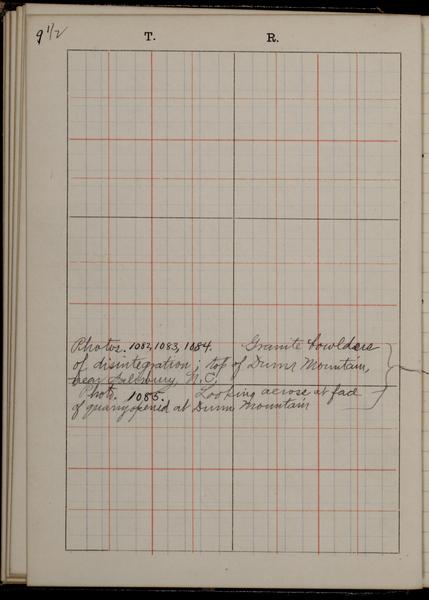 9 1/2
T. R.
Photos. 1082, 1083, 1084. Granite bowlders
of disintegration; top of Dunns Mountain,
near Salisbury, N.C.
Photo. 1085. Looking across at face
of quarry opened at Dunns Mountain